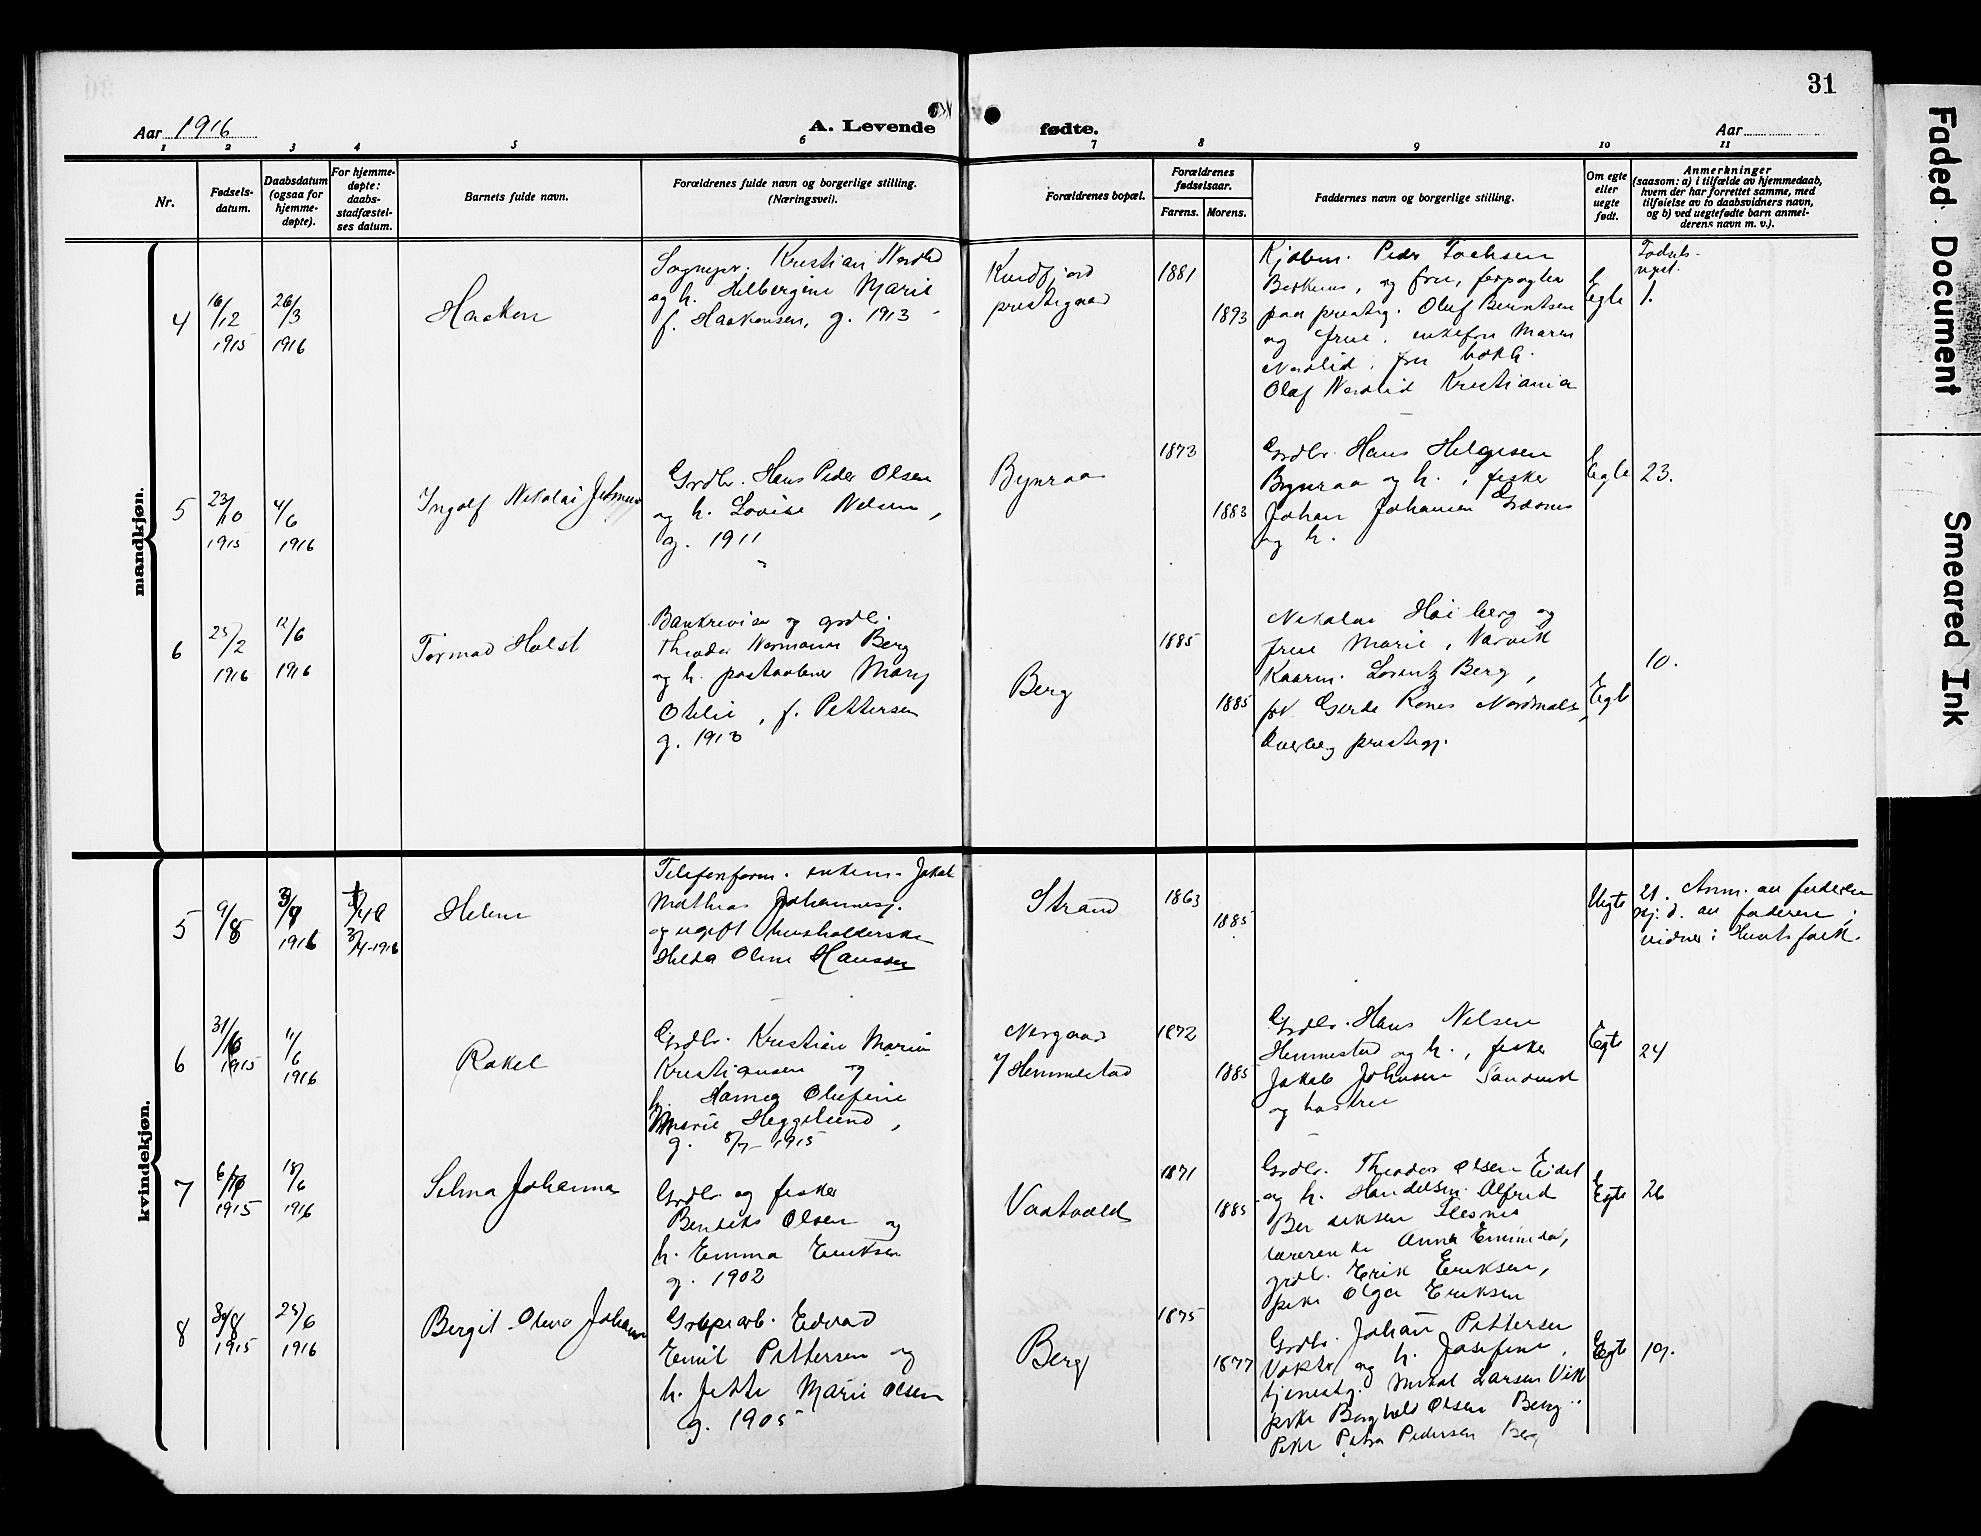 31
Aar 1916
A. Levende
fødte.
Aar
1 2 3 4 5 6 7 8 9 10 11
Nr.
Fødsels-
datum.
Daabsdatum
(ogsaa for
hjemme-
døpte).
For hjemme-
døpte:
daabs-
stadfæstel-
ses datum.
Barnets fulde navn.
Forældrenes fulde navn og borgerlige stilling.
(Næringsvei).
Forældrenes bopæl.
Forældrenes
fødselsaar.
Farens. Morens.
Faddernes navn og borgerlige stilling.
Om egte
eller
uegte
født.
Anmerkninger
(saasom: a) i tilfælde av hjemmedaab,
hvem der har forrettet samme, med
tilføielse av to daabsvidners navn,
og b) ved uegtefødte barn anmel-
derens navn m. v.).
mandkjøn.
4
16/12
1915
26/3
1916
Haakon
Sognepr. Kristian Nordlid
og h. Helbergine Marie
f. Haakonsen, g. 1913
Kvedfjord
prestegaard
1881
1893
Kjøbm. Peder
og frue, forpagter
paa prestg. Oluf Berntsen
og frue, enkefru Maren
Nordlid, fru
Olaf Nordlid Kristiania
Egte
Fødsels-
regst.
1.
5
23/10
1915
4/6
1916
Ingolf Nikolai Johnson
Grdbr. Hans Peder Olsen
og h. Lovise Nelsen,
g. 1911
Bynraa
1873
1883
Grdbr. Hans Helgesen
Bynraa og h., fisker
Johan Johansen
og h.
Egte
23.
6
25/2
1916
12/6
1916
Tormod Holst
Bankrevisor og grdb.
Theodor Normann Berg
og h. postaabner Mary
Otelie, f. Pettersen
g. 1913
Berg
1885
1885
Nikolai Høiberg og
frue Marie, Narvik
Kaarm. Lorentz Berg,
frk Gerda
prestegj.
Egte
10.
kvindekjøn.
5
9/8
1916
3/4-1916
Helene
Telefonform. enkem. Jakob
Mathias Johannes.
og ugift husholderske
Helda Oline Hanssen
Strand
1863
1885
Uegte
21. Anm. av faderen
hj. d. av faderen;
vidner: Husets folk.
6
1915
11/6
1916
Rakel
Grdbr. Kristian Marin
Kristiansen og
h. Hanna Olufine
Marie Heggelund,
g. 8/7-1915
Nergaard
/Hemmestad
1872
1885
Grdbr. Hans Nilsen
Hemmestad og h., fisker
Jakob Johnsen Sandvik
og hustru
Egte
24
7
1915
18/6
1916
Selma Johanna
Grdbr. og fisker
Bendiks Olsen og
h. Emma Eriksen
g. 1902
Vaatvold
1871
1885
Grdbr. Theodor Olsen Eidet
og h. Handelsm. Alfred
Bendiksen
lærerinde Anna
grdb. Erik Eriksen,
pike Olga Eriksen
Egte
26
8
1915
25/6
1916
Bergit Olena Johanne
Grubearb. Edvard
Emil Pettersen og
h. Jette Marie Olsen
g. 1905
Berg
1875
1877
Grdbr. Johan Pettersen
Vokter og h. Josefine,
tjenestg. Mikal Larsen Vik
pike Borghild Olsen Berg
Pike Petra Pedersen Berg
Egte
19.
Faded Document
Smeared Ink